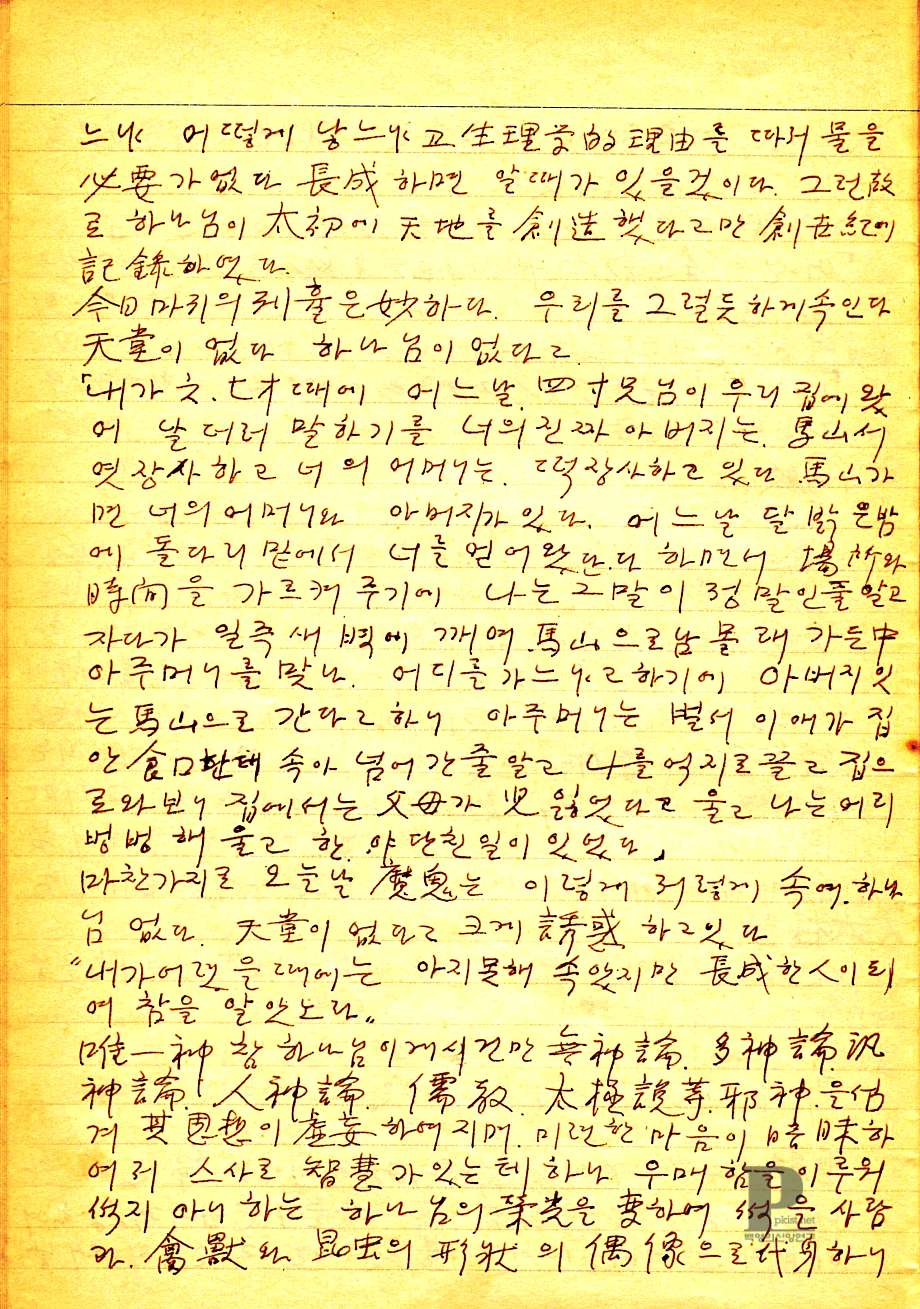 느냐 어떻게 낳느냐고 生理学的 理由를 따져 물을
必要가 없다 長成하면 알때가 있을것이다. 그런故
로 하나님이 太初에 天地를 創造했다고만 創世紀에
記錄하였다.
今日 마귀의 궤휼은 妙하다. 우리를 그럴듯하게 속인다
天堂이 없다 하나님이 없다고
「내가 六.七才 때에 어느날. 四寸兄님이 우리 집에 왔
에 날더러 말하기를 너의 진짜 아버지는. 馬山서
엿장사하고 너의 어머니는. 떡장사하고 있다 馬山가
면 너의 어머니와 아버지가 있다. 어느날 달 밝은밤
에 돌다리 밑에서 너를 얻어 왔단다 하면서 場所와
時间을 가르켜 주기에 나는 그말이 정말인줄알고
자다가 일즉 새벽에 깨여 馬山으로 남몰래 가든中
아주머니를 맞나. 어디를 가느냐고 하기에 아버지 잇
는 馬山으로 간다고 하니 아주머니는 벌서 이애가 집
안 食口한테 속아 넘어간줄 알고 나를 억지로 끌고 집으
로와보니 집에서는 父母가 児 잃었다고 울고 나는 어리
벙벙해 울고 한. 야단친일이 있었다」
마찬가지로 오늘날 魔鬼는 이렇게 저렇게 속여. 하나
님 없다. 天堂이 없다고 크게 誘惑 하고있다
"내가 어렸을때에는 아지못해 속았지만 長成한 人이 되
여 참을 알앗노라"
唯一神 참 하나님이 게시건만 無神論. 多神論. 汎
神論. 人神論. 儒敎. 太極說等. 邪神.을 섬
겨 其思想이 虛妄하여지며. 미련한 마음이 暗昧하
여져 스사로 智慧가 있는 테 하나 우매함을 이루워
썩지 아니하는 하나님의 榮光을 変하여 썩을 사람
과. 禽獸와 昆虫의 形狀의 偶像으로 代身하니
P
pkist.net
백영희신앙연구